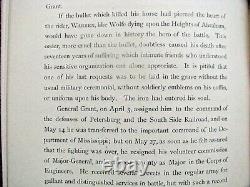 Grant.
If the bullet which killed his horse had pierced the heart of
the rider, WARREN, like Wolfe dying upon the Heights of Abraham,
would have gone down in history the hero of the battle. This
other, more cruel than the bullet, doubtless caused his death after
seventeen years of suffering which intimate friends who
his sensitive organization can alone appreciate. It is
one of his last requests was to be laid in the grave without the
usual military ceremonial, without soldierly emblems on his coffin,
or uniform upon his body. The iron had entered his soul.
General Grant, on April 3, assigned him to the command of
the defences of Petersburg and the South Side Railroad, and on
May 14 he was transferred to the important command of the De-
partment of Mississippi; but on May 27, as soon as he felt assured
that the fighting was over, he resigned his volunteer commission
of Major-General, and to duty as Major in the Corps of
Engineers. He received several brevets in the regular army for
gallant and distinguished services in battle, but with such a record